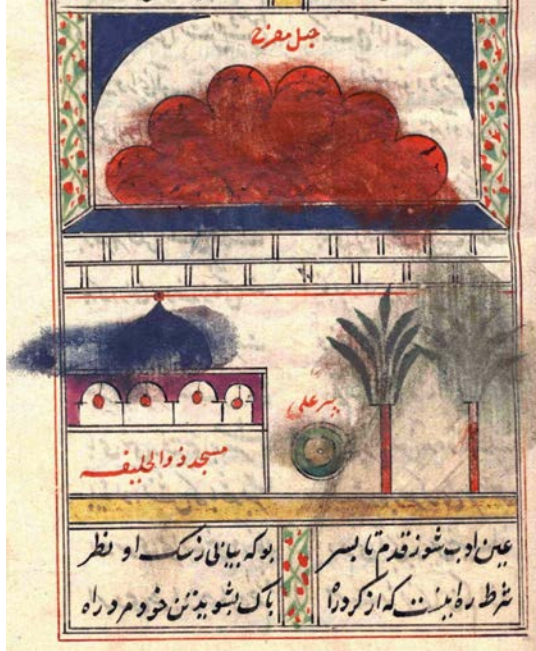 جبل مفرح
بیر علی
مسجد ذوالحلیفه
عین ادب شو ز قدم تا بسر بو که بیابی ز سک او نظر
شرط ره اینست که از کرد راه پاک بشوید تن خود مرد راه